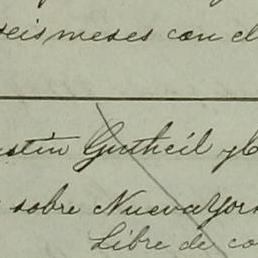 seis meses con el
stin Gutheil y C
sobre Nueva York
Libre de co